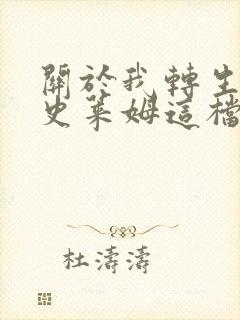 關於我轉生
史萊姆這檔
杜濤濤